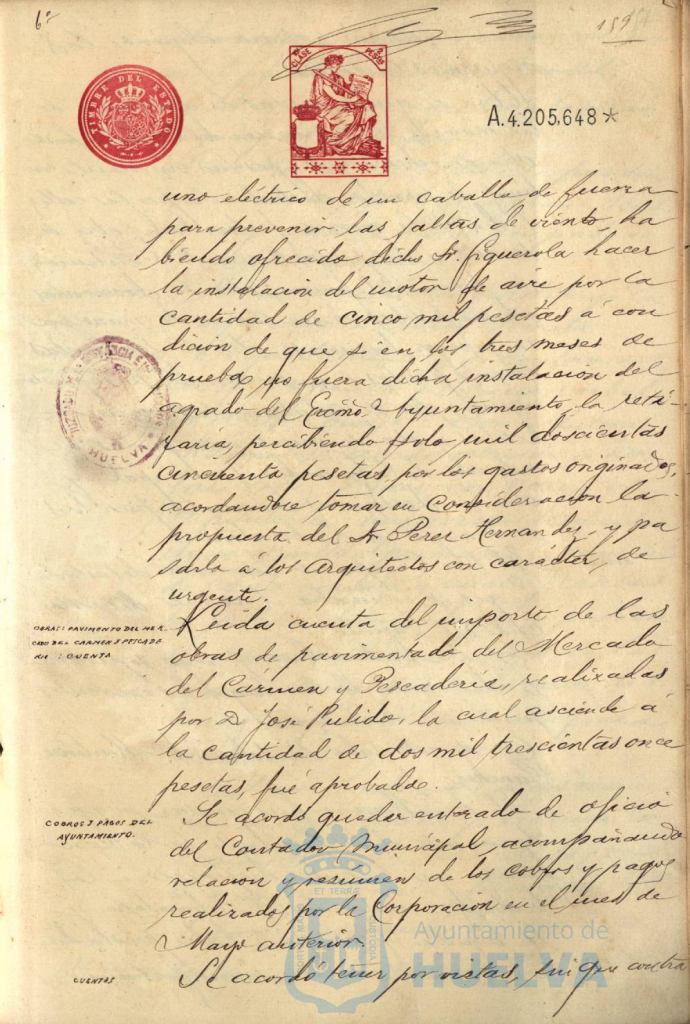 6ª
159
TIMBRE DEL ESTADO
CLASE
PESOS
A.4.205,648*
uno eléctrico de un caballo de fuerza
para prevenir las faltas de viento, ha
biendo ofrecido dicho Sr. Figuerola hacer
la instalacion del motor de aire por la
cantidad de cinco mil pesetas á con
dicion de que si en los tres meses de
prueba, no fuera dicha instalacion del
agrado del Excmo. Ayuntamiento, la reti-
raria, percibiendo solo mil doscientas
cincuenta pesetas por los gastos originados,
acordandose tomar en consideracion la
propuesta del Sr. Perez Hernandez, y pa
sarla á los Arquitectos con carácter de
urgente.
HUELVA
OBRAS: PAVIMENTO DEL MER
CADO DEL CARMEN Y PESCADE
RIA: CUENTA
Leida cuenta del importe de las
obras de pavimentado del Mercado
del Cármen y Pescadería, realizadas
por D. José Pulido, la cual asciende á
la cantidad de dos mil trescientas once
pesetas, fué aprobado.
COBROS Y PAGOS DEL
AYUNTAMIENTO.
Se acordó quedar enterado de oficio
del Contador Municipal, acompañando
relación y resúmen de los cobros y pagos
realizados por la Corporación en el mes de
Mayo anterior.
CUENTOS
Se acordó tener por vistas, sin que contra
Ayuntamiento de
HUELVA